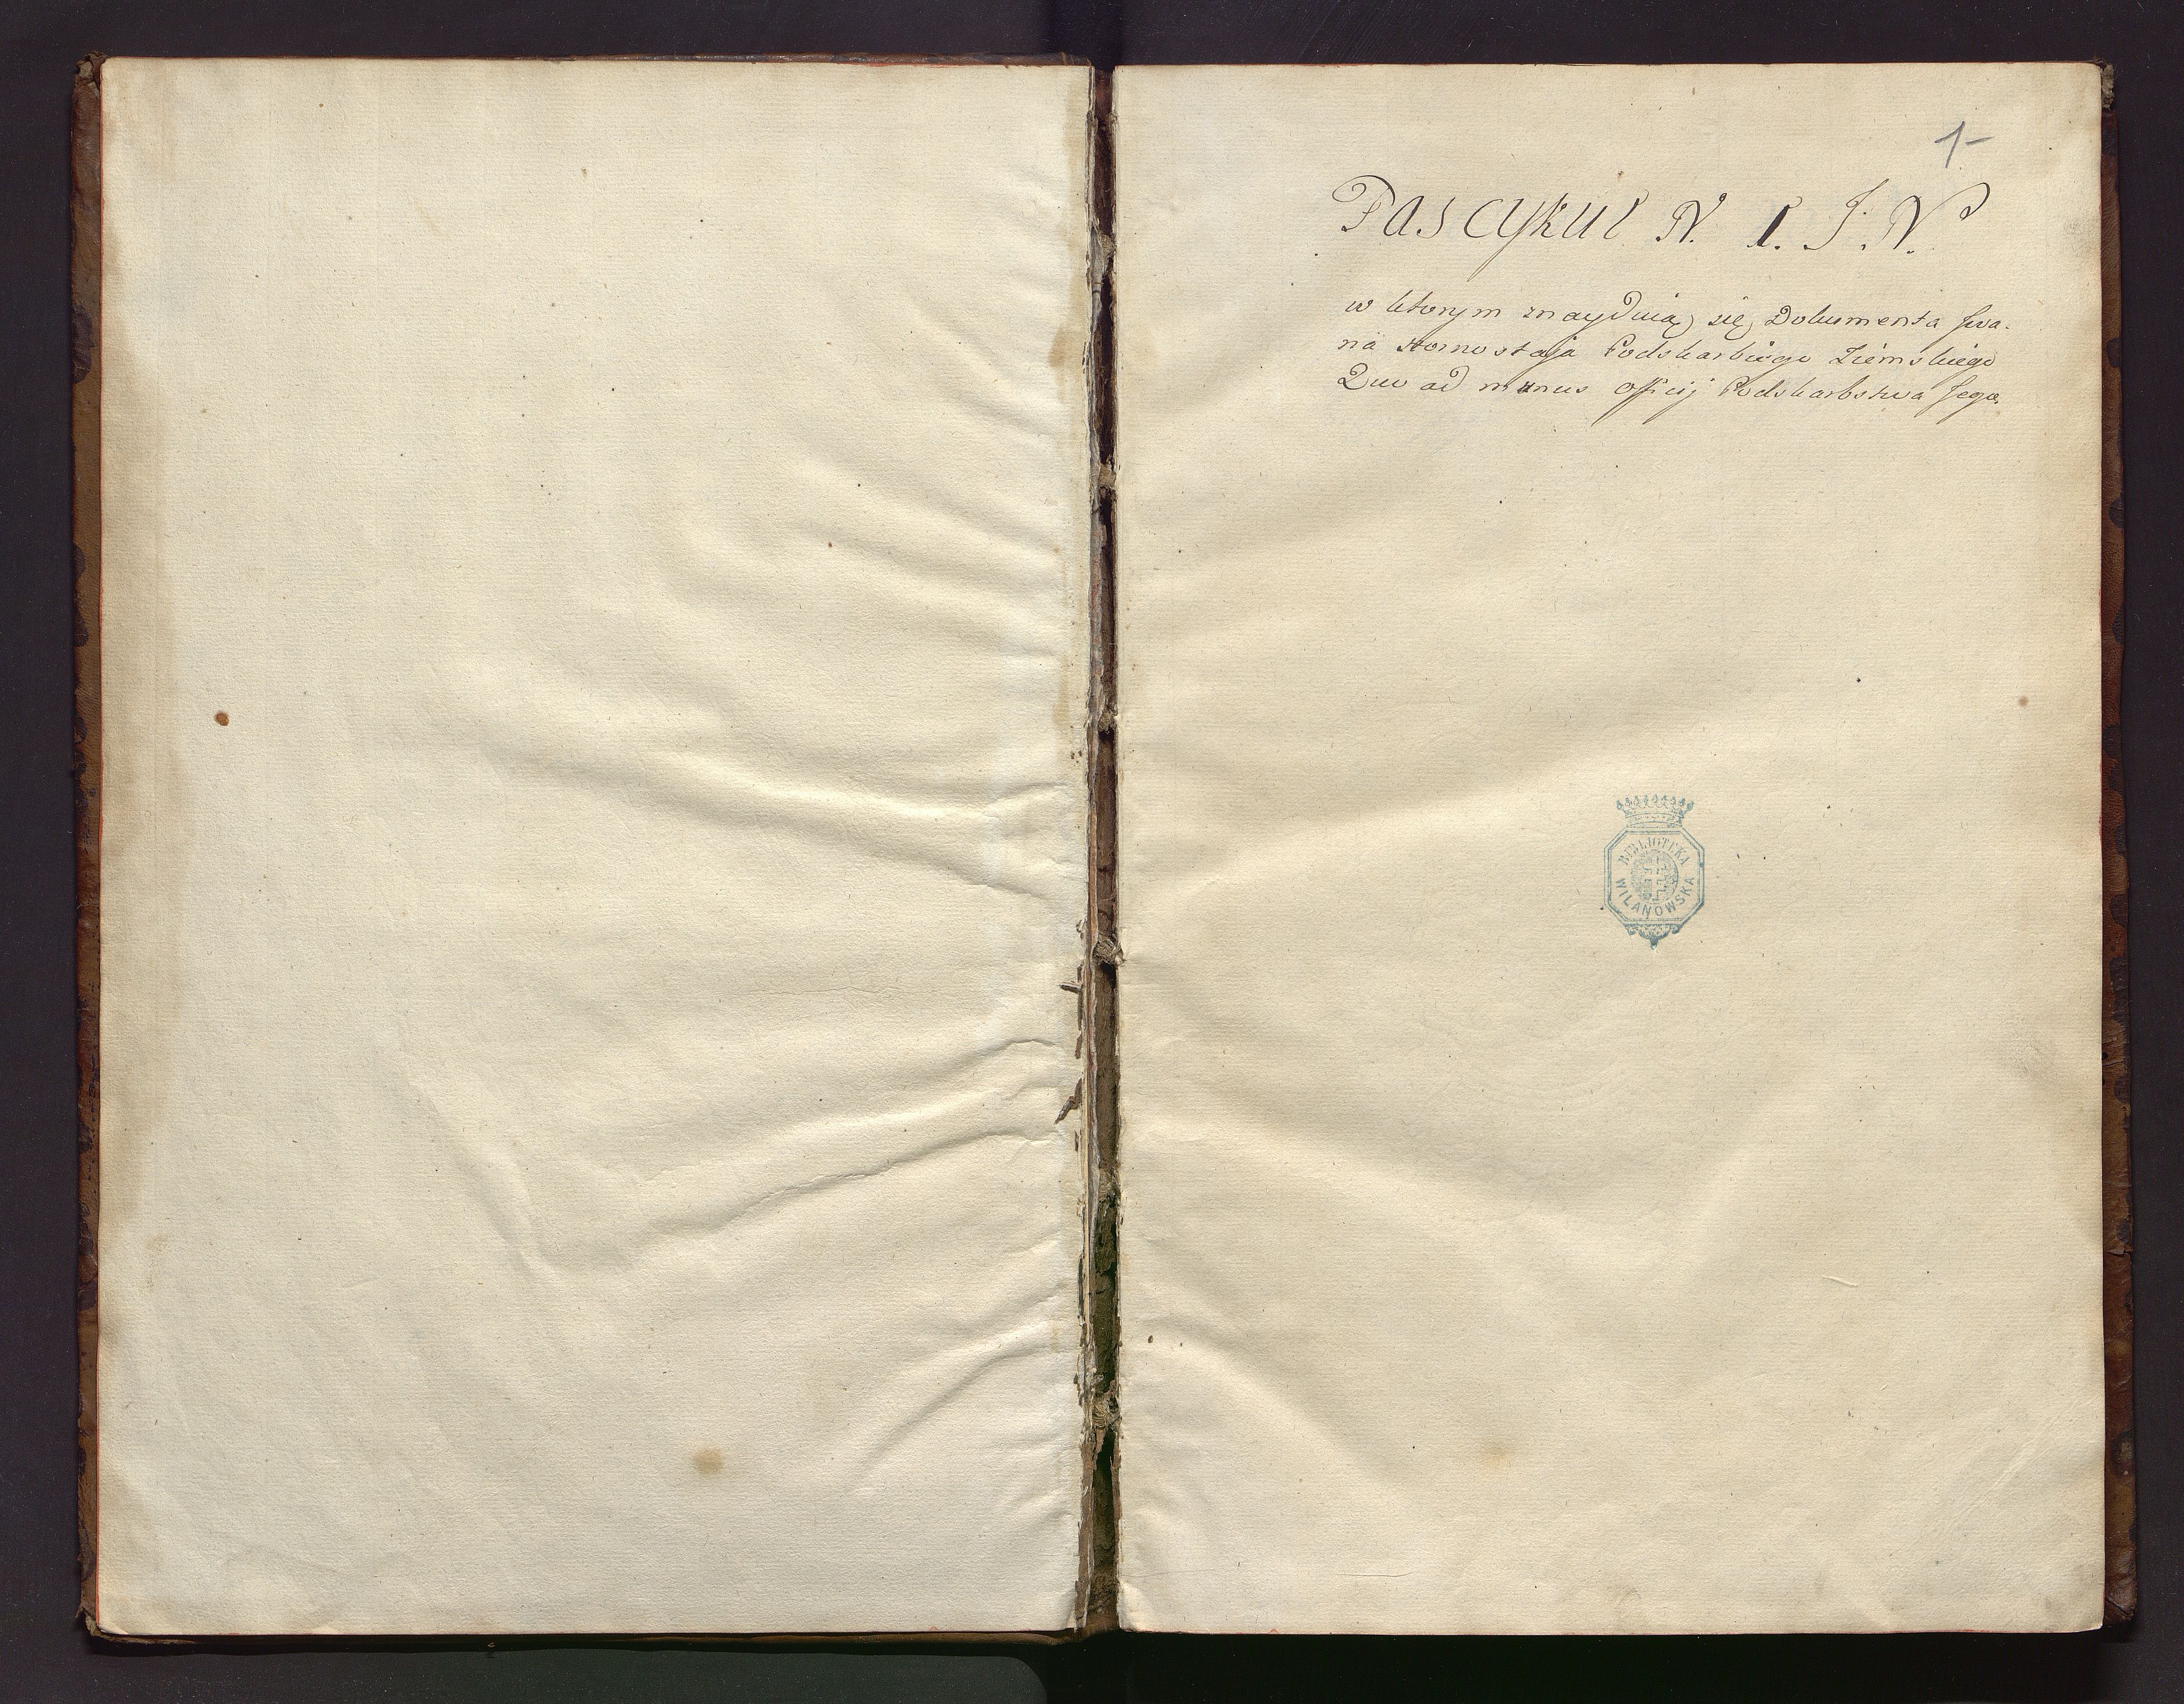 1-
Fascykul N. 1. J. N.
w ktorym znayduią się Dokumenta Jwa-
na Hornostaja Podskarbiego Ziemskiego
Quo ad munus Officij Podskarbstwa Jego.
BIBLIOTEKA
WILANOWSKA